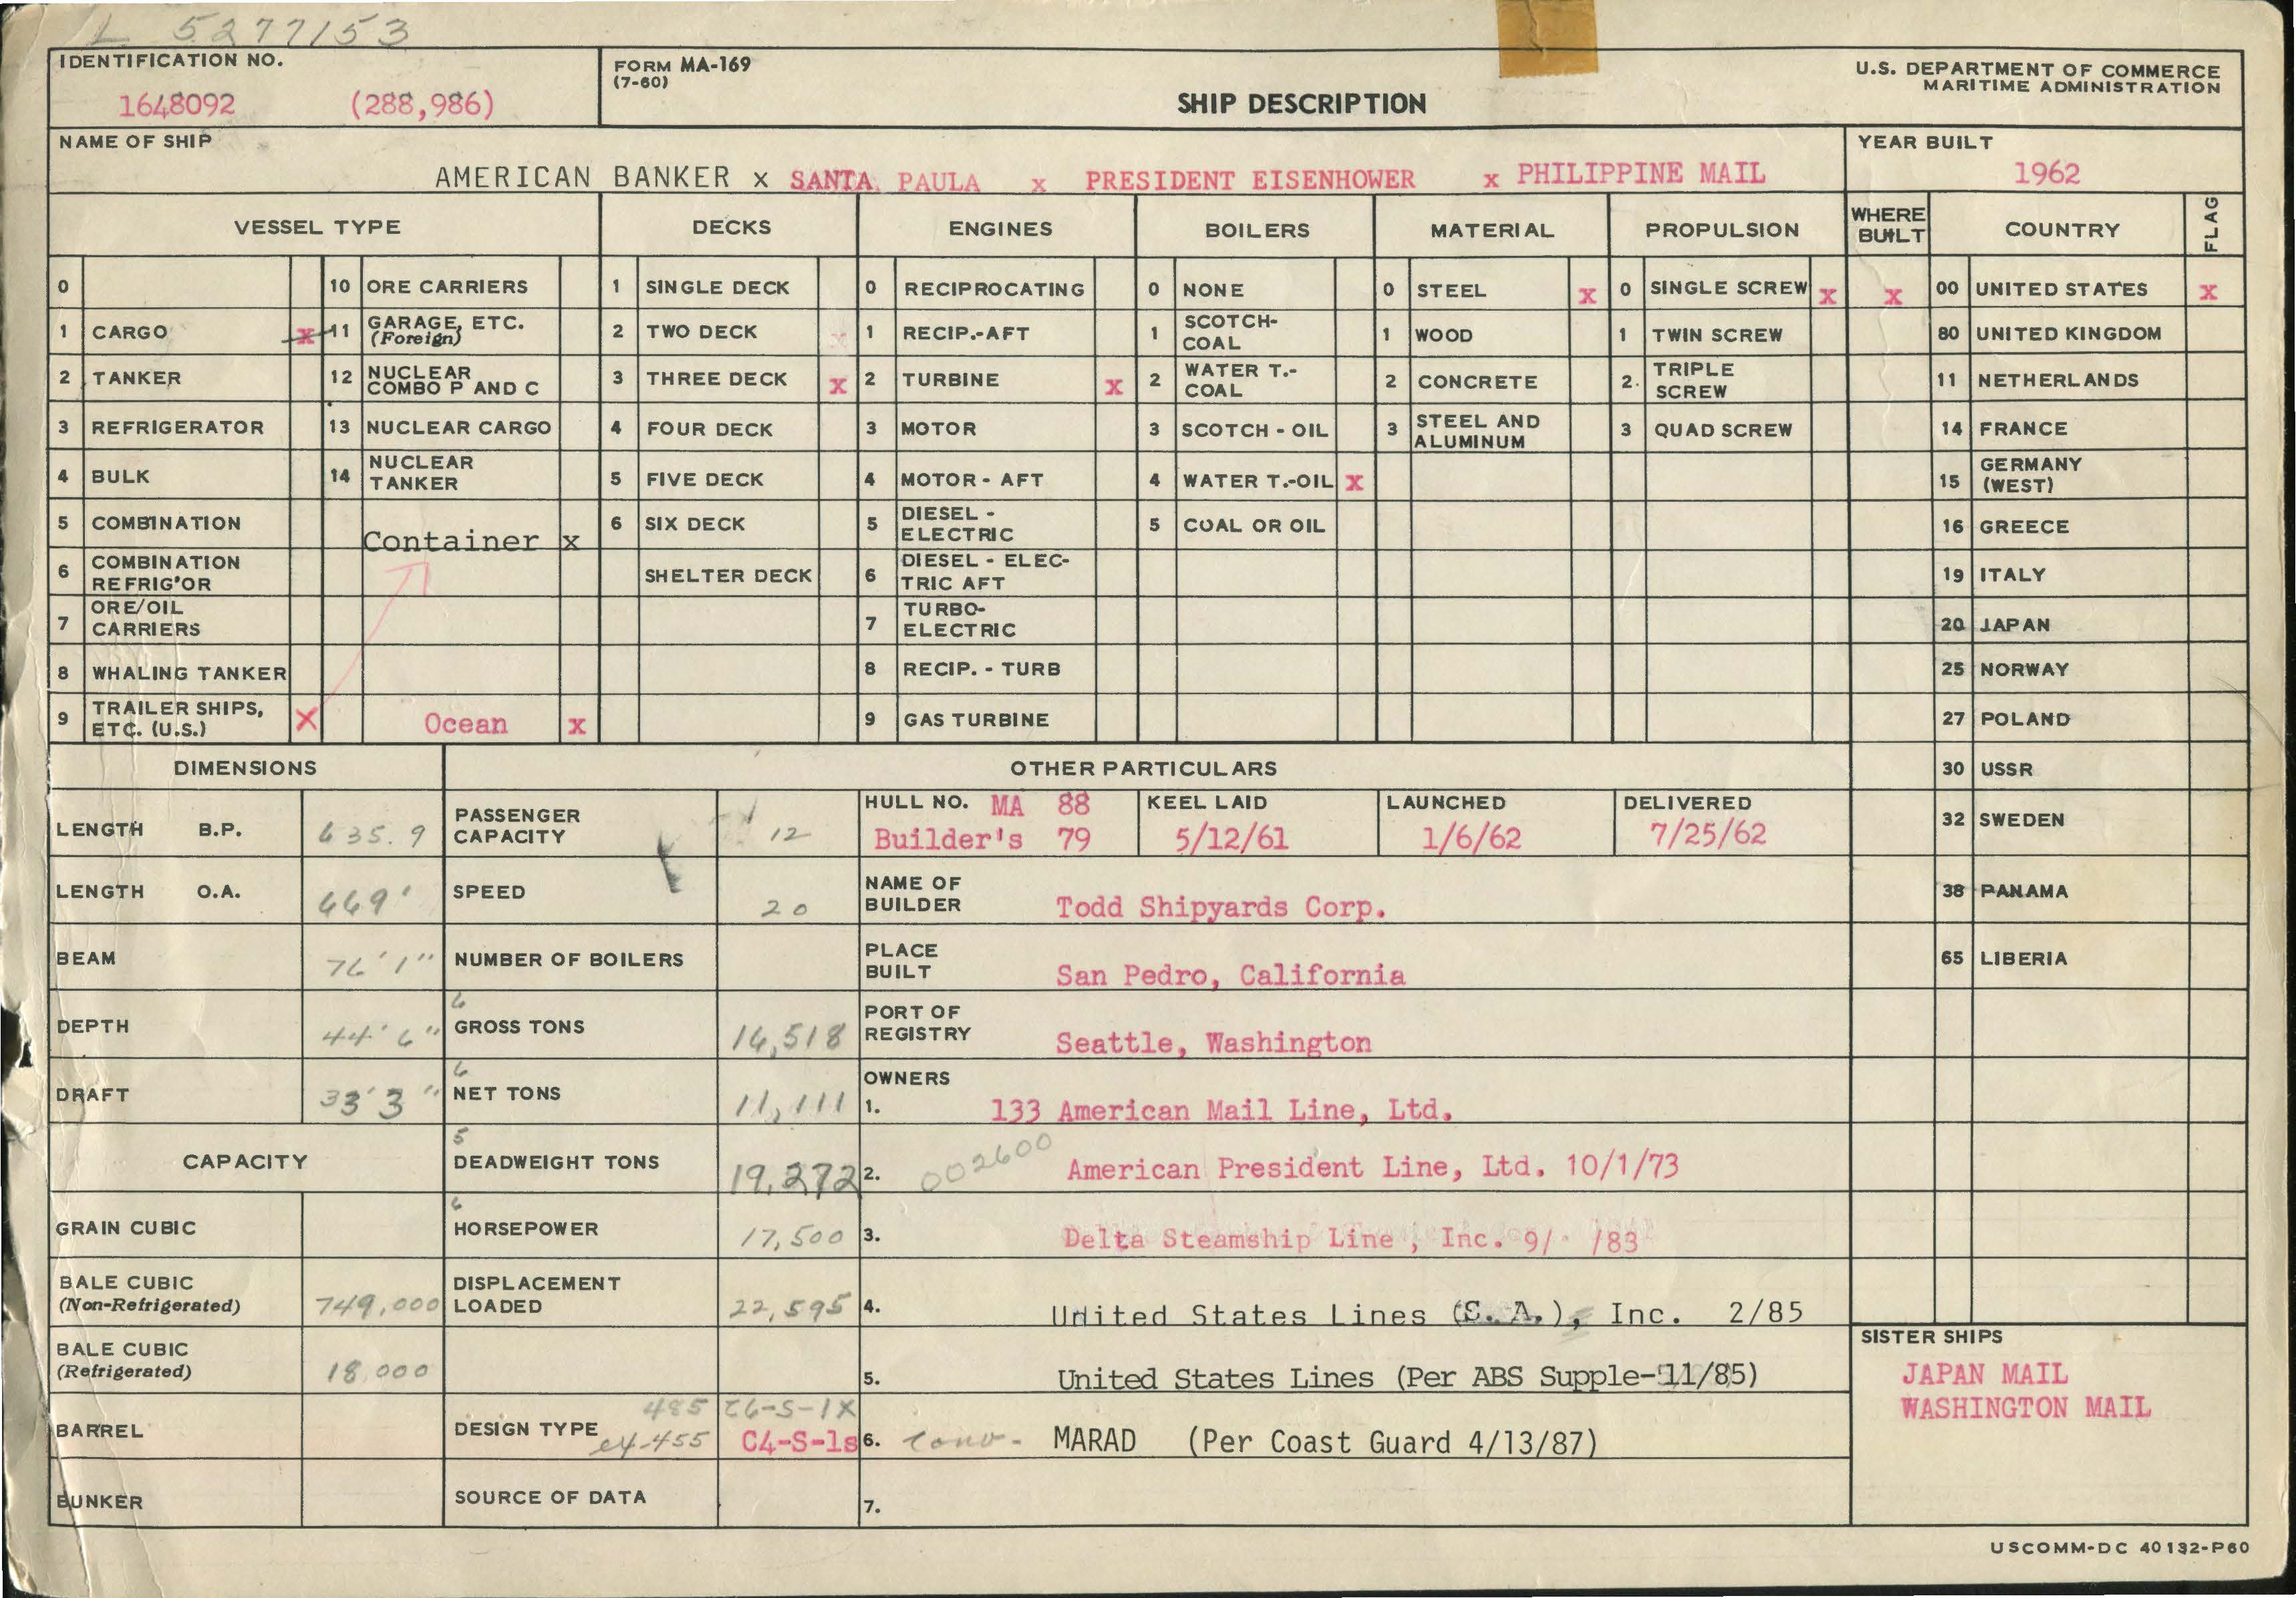 L 5277153
IDENTIFICATION NO.
1648092 (288,986)
FORM MA-169
(7-60)
SHIP DESCRIPTION
U.S. DEPARTMENT OF COMMERCE
MARITIME ADMINISTRATION
NAME OF SHIP
AMERICAN BANKER x SANTA PAULA x PRESIDENT EISENHOWER x PHILIPPINE MAIL
YEAR BUILT
1962
VESSEL TYPE DECKS ENGINES BOILERS MATERIAL PROPULSION WHERE BUILT COUNTRY FLAG
0 10 ORE CARRIERS 1 SINGLE DECK 0 RECIPROCATING 0 NONE 0 STEEL x 0 SINGLE SCREW x x 00 UNITED STATES x
1 CARGO x 11 GARAGE, ETC. (Foreign) 2 TWO DECK x 1 RECIP.-AFT 1 SCOTCH-COAL 1 WOOD 1 TWIN SCREW 80 UNITED KINGDOM
2 TANKER 12 NUCLEAR COMBO P AND C 3 THREE DECK x 2 TURBINE x 2 WATER T.-COAL 2 CONCRETE 2. TRIPLE SCREW 11 NETHERLANDS
3 REFRIGERATOR 13 NUCLEAR CARGO 4 FOUR DECK 3 MOTOR 3 SCOTCH - OIL 3 STEEL AND ALUMINUM 3 QUAD SCREW 14 FRANCE
4 BULK 14 NUCLEAR TANKER 5 FIVE DECK 4 MOTOR - AFT 4 WATER T.-OIL x 15 GERMANY (WEST)
5 COMBINATION Container x 6 SIX DECK 5 DIESEL - ELECTRIC 5 COAL OR OIL 16 GREECE
6 COMBINATION REFRIG'OR SHELTER DECK 6 DIESEL - ELECTRIC AFT 19 ITALY
7 ORE/OIL CARRIERS 7 TURBO-ELECTRIC 20 JAPAN
8 WHALING TANKER 8 RECIP. - TURB 25 NORWAY
9 TRAILER SHIPS, ETC. (U.S.) X Ocean x 9 GAS TURBINE 27 POLAND
DIMENSIONS OTHER PARTICULARS 30 USSR
LENGTH B.P. 635.9 PASSENGER CAPACITY 12 HULL NO. MA 88 KEEL LAID LAUNCHED DELIVERED
Builder's 79 5/12/61 1/6/62 7/25/62 32 SWEDEN
LENGTH O.A. 669' SPEED 20 NAME OF BUILDER Todd Shipyards Corp. 38 PANAMA
BEAM 76'1" NUMBER OF BOILERS PLACE BUILT San Pedro, California 65 LIBERIA
DEPTH 44'6" 6 GROSS TONS 16,518 PORT OF REGISTRY Seattle, Washington
DRAFT 33'3" 6 NET TONS 11,111 OWNERS 1. 133 American Mail Line, Ltd.
CAPACITY 5 DEADWEIGHT TONS 19,272 2. 002600 American President Line, Ltd. 10/1/73
GRAIN CUBIC 6 HORSEPOWER 17,500 3. Delta Steamship Line, Inc. 9/ /83
BALE CUBIC (Non-Refrigerated) 749,000 DISPLACEMENT LOADED 22,595 4. United States Lines (S.A.), Inc. 2/85
BALE CUBIC (Refrigerated) 18,000 5. United States Lines (Per ABS Supple-11/85)
BARREL DESIGN TYPE 485 C6-S-1X
e4-455 C4-S-1s 6. conv- MARAD (Per Coast Guard 4/13/87)
BUNKER SOURCE OF DATA 7.
SISTER SHIPS
JAPAN MAIL
WASHINGTON MAIL
USCOMM-DC 40132-P60